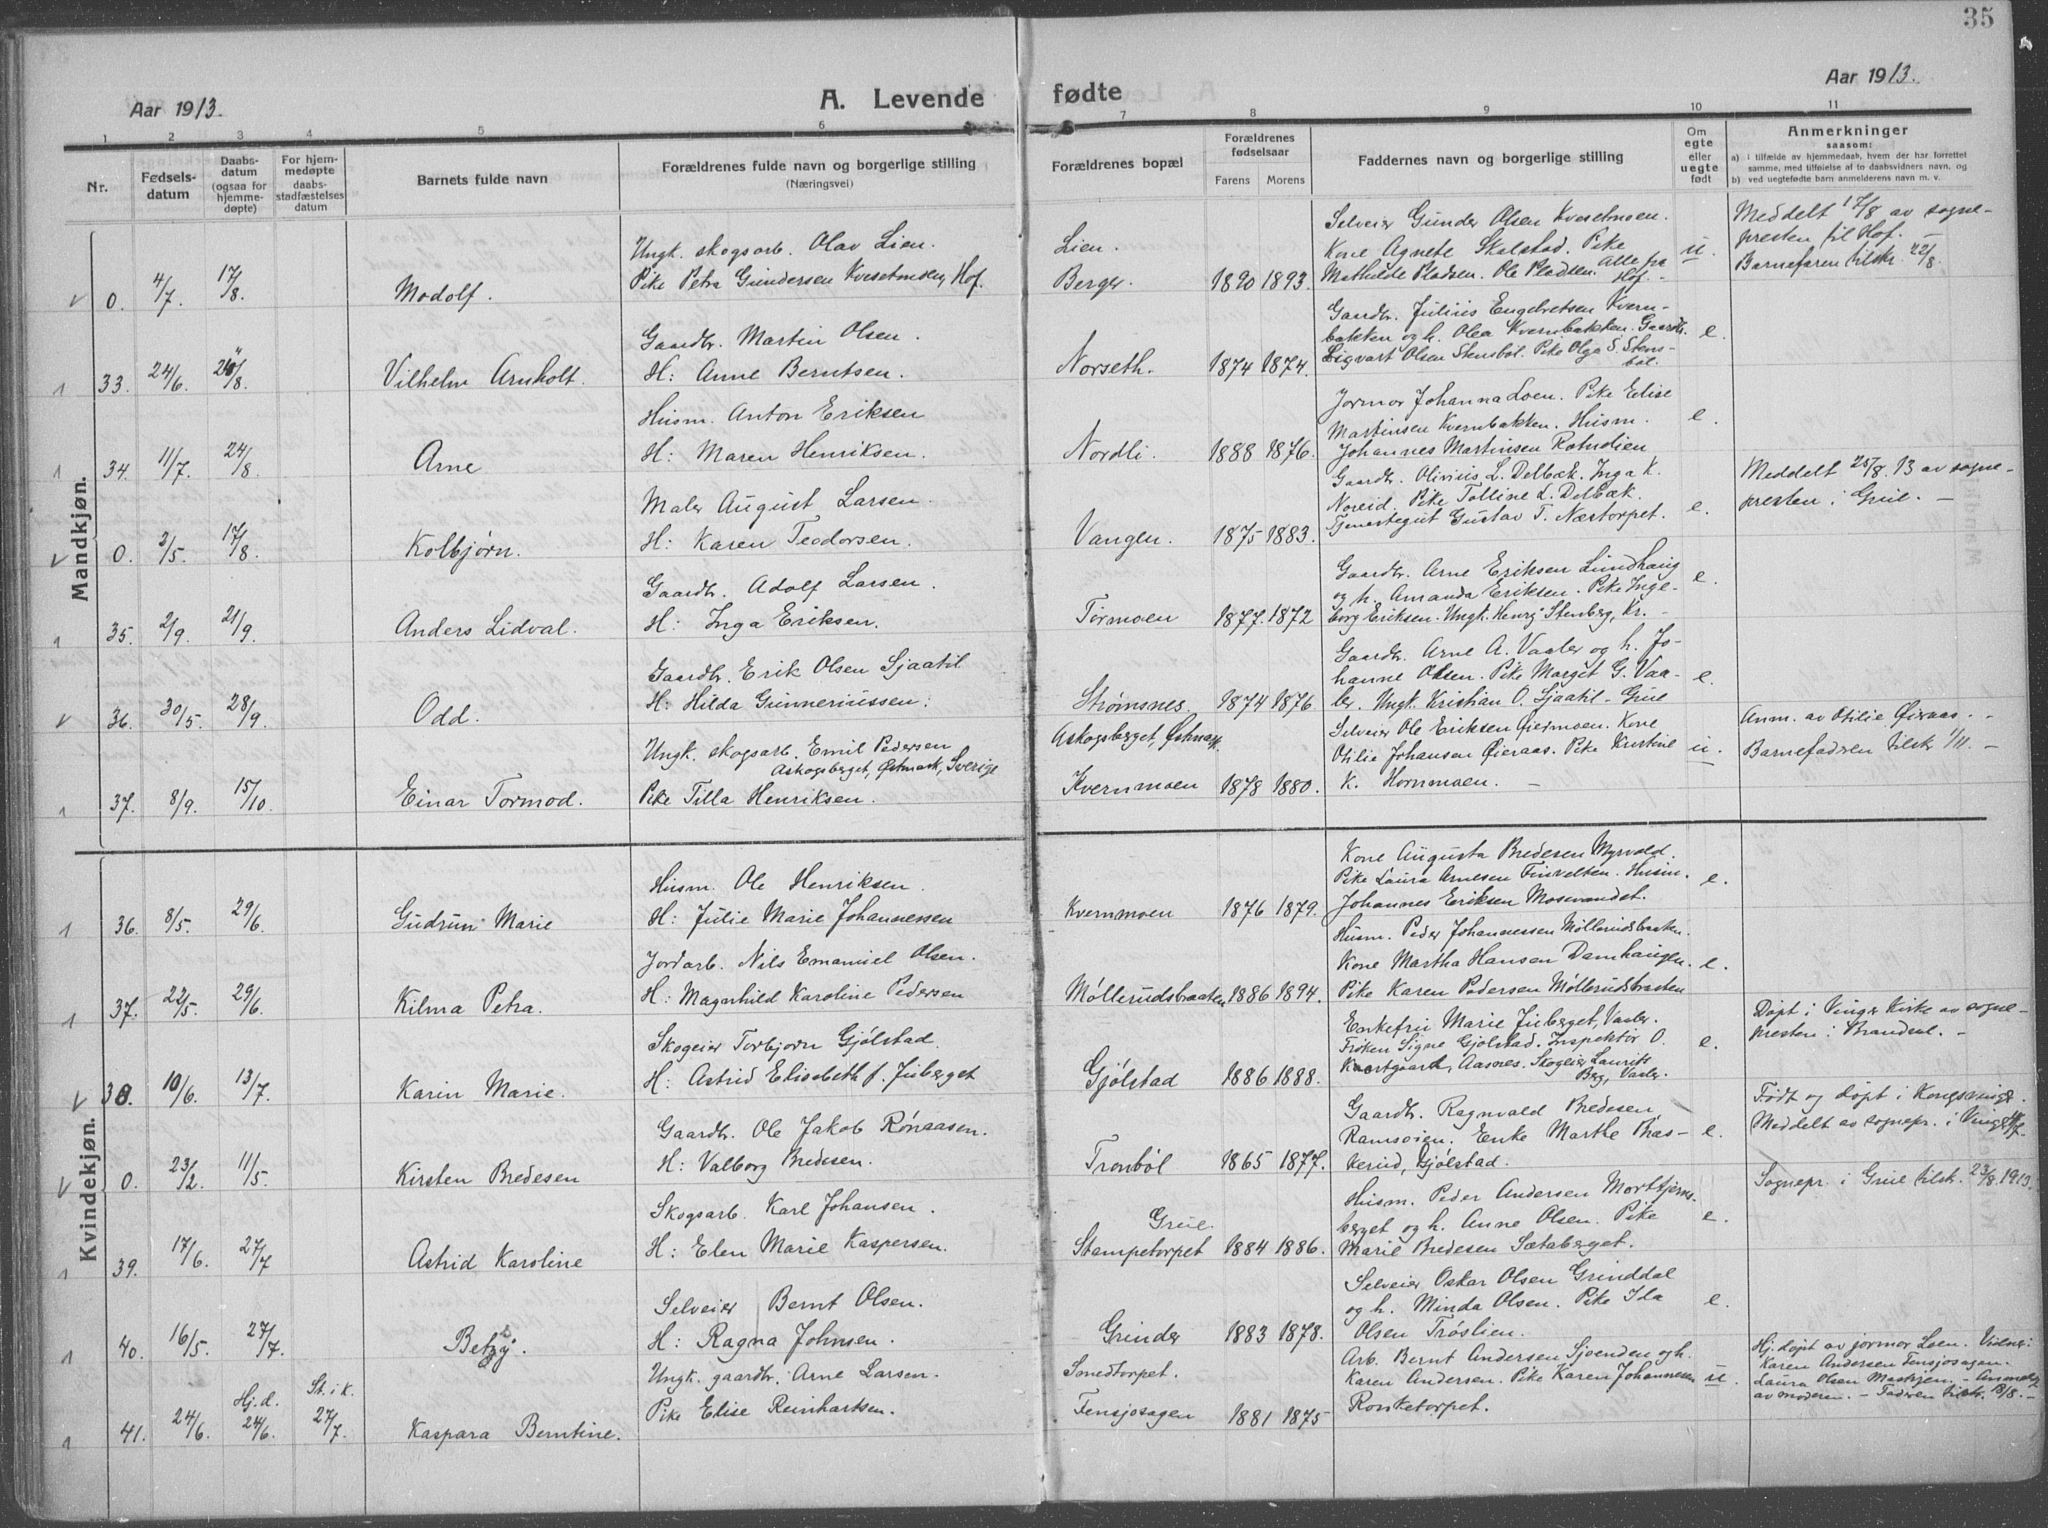 35
Aar 1913.
A. Levende fødte
Aar 1913.
1 2 3 4 5 6 7 8 9 10 11
Nr.
Fødsels-
datum
Daabs-
datum
(ogsaa for
hjemme-
døpte)
For hjem-
medøpte
daabs-
stadfæstelses
datum
Barnets fulde navn
Forældrenes fulde navn og borgerlige stilling
(Næringsvei)
Forældrenes bopæl
Forældrenes
fødselsaar
Farens Morens
Faddernes navn og borgerlige stilling
Om
egte
eller
uegte
født
Anmerkninger
saasom:
a) i tilfælde av hjemmedaab, hvem der har forrettet
samme, med tilføielse af to daabsvidners navn, og
b) ved uegtefødte barn anmelderens navn m. v.
Mandkjøn.
0. 4/7 17/8. Modolf.
Ungk. skogsarb. Olav Lien.
Pike Petra Gundersen Kvesetmoen, Hof.
Lien.
Berger 1890 1893.
Selveier Gunder Olsen Kvesetmoen.
Kone Agnete Skalstad. Pike
Mathilde Pladsen. Ole Pladsen. Alle fra
Hof. -
u.
Meddelt 17/8 av sogne-
presten til Hof. -
Barnefaren tilskr. 22/8.
33. 24/6. 24/8. Vilhelm Arnholt.
Gaardbr. Martin Olsen.
H: Anne Berntsen.
Norseth. 1874 1874.
Gaardbr. Julius Engebretsen Kvern-
bakken og h. Olea Kvernbakken. Gaardbr.
Sigvart Olsen Stensbøl. Pike Olga S. Stens-
bøl.
e.
34. 11/7. 24/8 Arne
Husm. Anton Eriksen
H: Maren Henriksen.
Nordli. 1888 1876.
Jormor Johanna Loen. Pike Elise
Martinsen Kvernbakken. Husm.
Johannes Martinsen Rotudien
e.
0. 2/5. 17/8. Kolbjørn.
Maler August Larsen.
H: Karen Teodorsen.
Vangen. 1875 1883.
Gaardbr. Olivius L. Delbæk. Inga K.
Noreid. Pike Tolline L. Delbæk.
Tjenestegut Gustav T. Næstorpet.
e.
Meddelt 25/8. 13 av sogne-
presten i Grue. -
35. 2/9. 21/9. Anders Lidval.
Gaardbr. Adolf Larsen.
H: Inga Eriksen.
Tørmoen 1877. 1872
Gaardbr. Arne Eriksen Lundhaug
og h. Amanda Eriksen. Pike Inge-
borg Eriksen. Ungk. Henry Stenberg, Kr. -
e.
36. 30/5. 28/9. Odd.
Gaardbr. Erik Olsen Sjaatil
H: Hilda Gunneriussen.
Strømsnes. 1874 1876
Gaardbr. Arne A. Vaaler og h. Jo-
hanne Olsen. Pike Margit G. Vaa-
ler. Ungk. Kristian O. Sjaatil - Grue
e.
37. 8/9. 15/10. Einar Tormod.
Ungk. skogsarb. Emil Pedersen
Askogsberget, Østmark, Sverige
Pike Tilla Henriksen.
Askogsberget, Østmark.
Kvernmoen 1878 1880.
Selveier Ole Eriksen Øiermoen. Kone
Otilie Johansen Øieraas. Pike Kristine
K. Hornmoen. -
u.
Anm. av Otilie Øieraas. -
Barnefadren tilskr. 1/11. -
Kvindekjøn.
36. 8/5. 29/6. Gudrun Marie
Husm. Ole Henriksen.
H: Julie Marie Johannessen
Kvernmoen 1876 1879.
Kone Augusta Bredesen Myrvold.
Pike Laura Arnesen Finvelten. Husm.
Johannes Eriksen Mosevandet.
e.
37. 22/5. 29/6. Kilma Petra.
Jordarb. Nils Emanuel Olsen.
H: Magnhild Karoline Pedersen
Møllerudsbraaten 1886 1894.
Husm. Peder Johannessen Møllerudsbraaten.
Kone Martha Hansen Damhaugen.
Pike Karen Pedersen Møllerudsbraaten
e.
38. 10/6. 13/7. Karin Marie.
Skogeier Torbjørn Gjølstad.
H: Astrid Elisabeth f. Juberget
Gjølstad 1886 1888.
Enkefru Marie Juberget, Vaaler.
Frøken Signe Gjølstad. Inspektør O.
Aasnes. Skogeier Laurits
Berg, Vaaler.
e.
Døpt i Vinger Kirke av sogne-
presten i Brandval. -
0. 23/2. 11/5. Kirsten Bredesen
Gaardbr. Ole Jakob Rønaasen.
H: Valborg Bredesen.
Tronbøl 1865 1877.
Gaardbr. Ragnvald Bredesen,
Ramsøien. Enke Marthe Ras-
kerud, Gjølstad.
e.
Født og døpt i Kongsvinger.
Meddelt av sognepr. i Vinger
39. 17/6. 27/7 Astrid Karoline
Skogsarb. Karl Johansen.
H: Elen Marie Kaspersen.
Grue.
Stampetorpet 1884 1886.
Husm. Peder Andersen Mortkjerns-
berget og h. Anne Olsen. Pike
Marie Bredesen Sætaberget.
e.
Sognepr. i Grue tilskr. 23/8. 1913.
40. 16/5. 27/7. Betzy.
Selveier Bernt Olsen.
H: Ragna Johnsen.
Grinder 1883 1878.
Selveier Oskar Olsen Grinddal
og h. Minda Olsen. Pike Ida
Olsen Trøslien.
e.
41. 24/6. Hj. d. 24/6. St. i k. 27/7. Kaspara Berntine.
Ungk. gaardbr. Arne Larsen.
Pike Elise Reinhartsen.
Smedtorpet.
Fensjøsagen 1881 1875
Arb. Bernt Andersen Sjøenden og h.
Karen Andersen. Pike Karen Johannesen
Ronketorpet.
u.
Hj. døpt av jormor Loen. Vidner:
Karen Andersen Fensjøsagen.
Laura Olsen Maskjen. - Anmeldt
av moderen. - Fadren tilskr. -